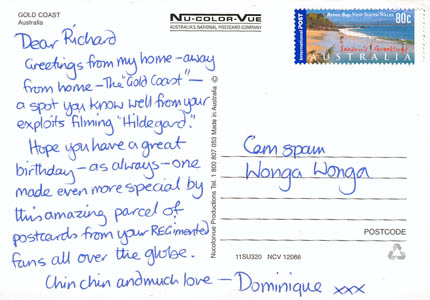 GOLD COAST
Australia
NU-COLOR-VUE
AUSTRALIA'S NATIONAL POSTCARD COMPANY
Dear Richard
Greetings from my home-away
from home-The "Gold Coast"-
a spot you know well from your
exploits filming "Hildegard."
Hope you have a great
birthday-as always-one
made even more special by
this amazing parcel of
postcards from your REGimented
fans all over the globe.
Chin chin and much love - Dominique xxx
Nucolorvue Productions Tel. 1 800 807 053 Made in Australia ©
INTERNATIONAL POST
Byron Bay, NEW SOUTH WALES
80c
Season's Greetings
AUSTRALIA
Cam spam
Wonga Wonga
POSTCODE
11SU320 NCV 12066